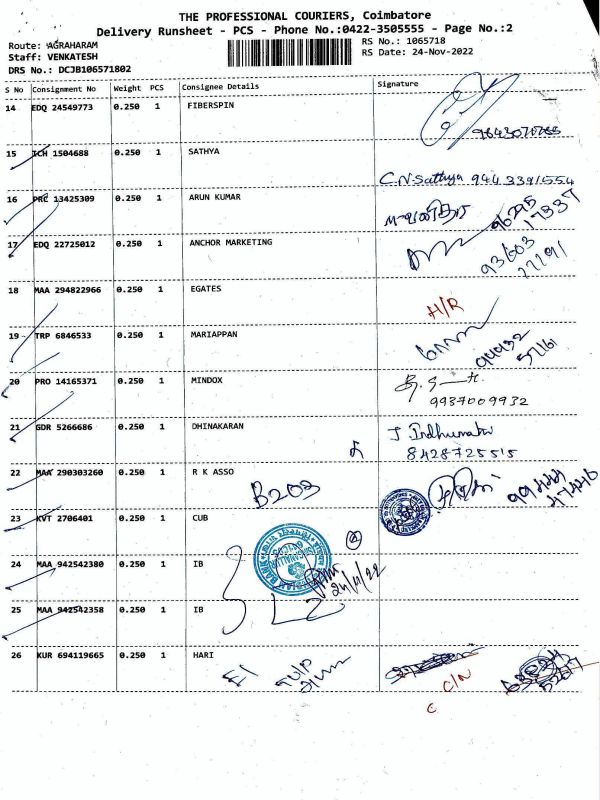 THE PROFESSIONAL COURIERS, Coimbatore
Delivery Runsheet - PCS - Phone No.:0422-3505555 - Page No.:2
Route: AGRAHARAM
RS No.: 1065718
Staff: VENKATESH
RS Date: 24-Nov-2022
DRS No.: DCJB106571802
S No Consignment No Weight PCS Consignee Details Signature
14 EDQ 24549773 0.250 1 FIBERSPIN
15 ICH 1504688 0.250 1 SATHYA
C.N.Sathya 944 3391554
16 PRC 13425309 0.250 1 ARUN KUMAR
96295 17337
17 EDQ 22725012 0.250 1 ANCHOR MARKETING
93603
18 MAA 294822966 0.250 1 EGATES
H/R
19 TRP 6846533 0.250 1 MARIAPPAN
20 PRO 14165371 0.250 1 MINDOX
9987009932
21 GDR 5266686 0.250 1 DHINAKARAN
8428725515
22 MAA 290303260 0.250 1 R K ASSO
B203
23 KVT 2706401 0.250 1 CUB
24 MAA 942542380 0.250 1 IB
24/11/22
25 MAA 942542358 0.250 1 IB
26 KUR 694119665 0.250 1 HARI
C/N